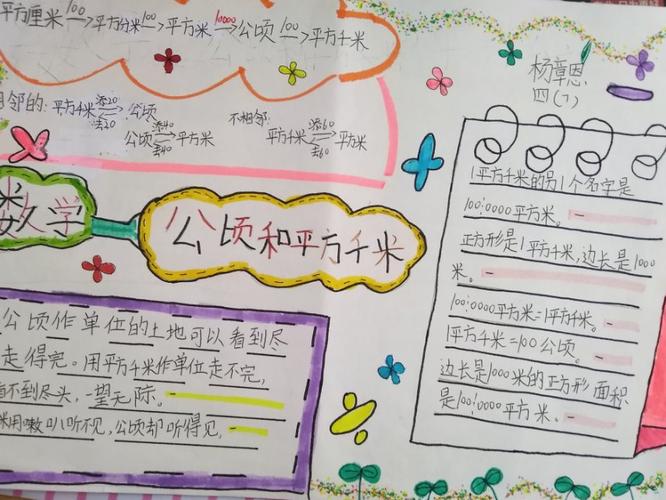 平方厘米 100→ 平方分米 100→ 平方米 10000→ 公顷 100→ 平方千米
相邻的: 平方千米 添20 去20 公顷
公顷 添40 去40 平方米
不相邻: 平方千米 添60 去60 平方米
数学
公顷和平方千米
公顷作单位的土地可以看到尽
走得完。用平方千米作单位走不完,
看不到尽头,一望无际。
用嗽叭听不见,公顷却听得见。
杨章恩
四(7)
1平方千米的另1个名字是
100|0000平方米。
正方形是1平方千米,边长是1000
米。
100|0000平方米=1平方千米。
1平方千米=100公顷。
边长是1000米的正方形面积
是100|0000平方米。